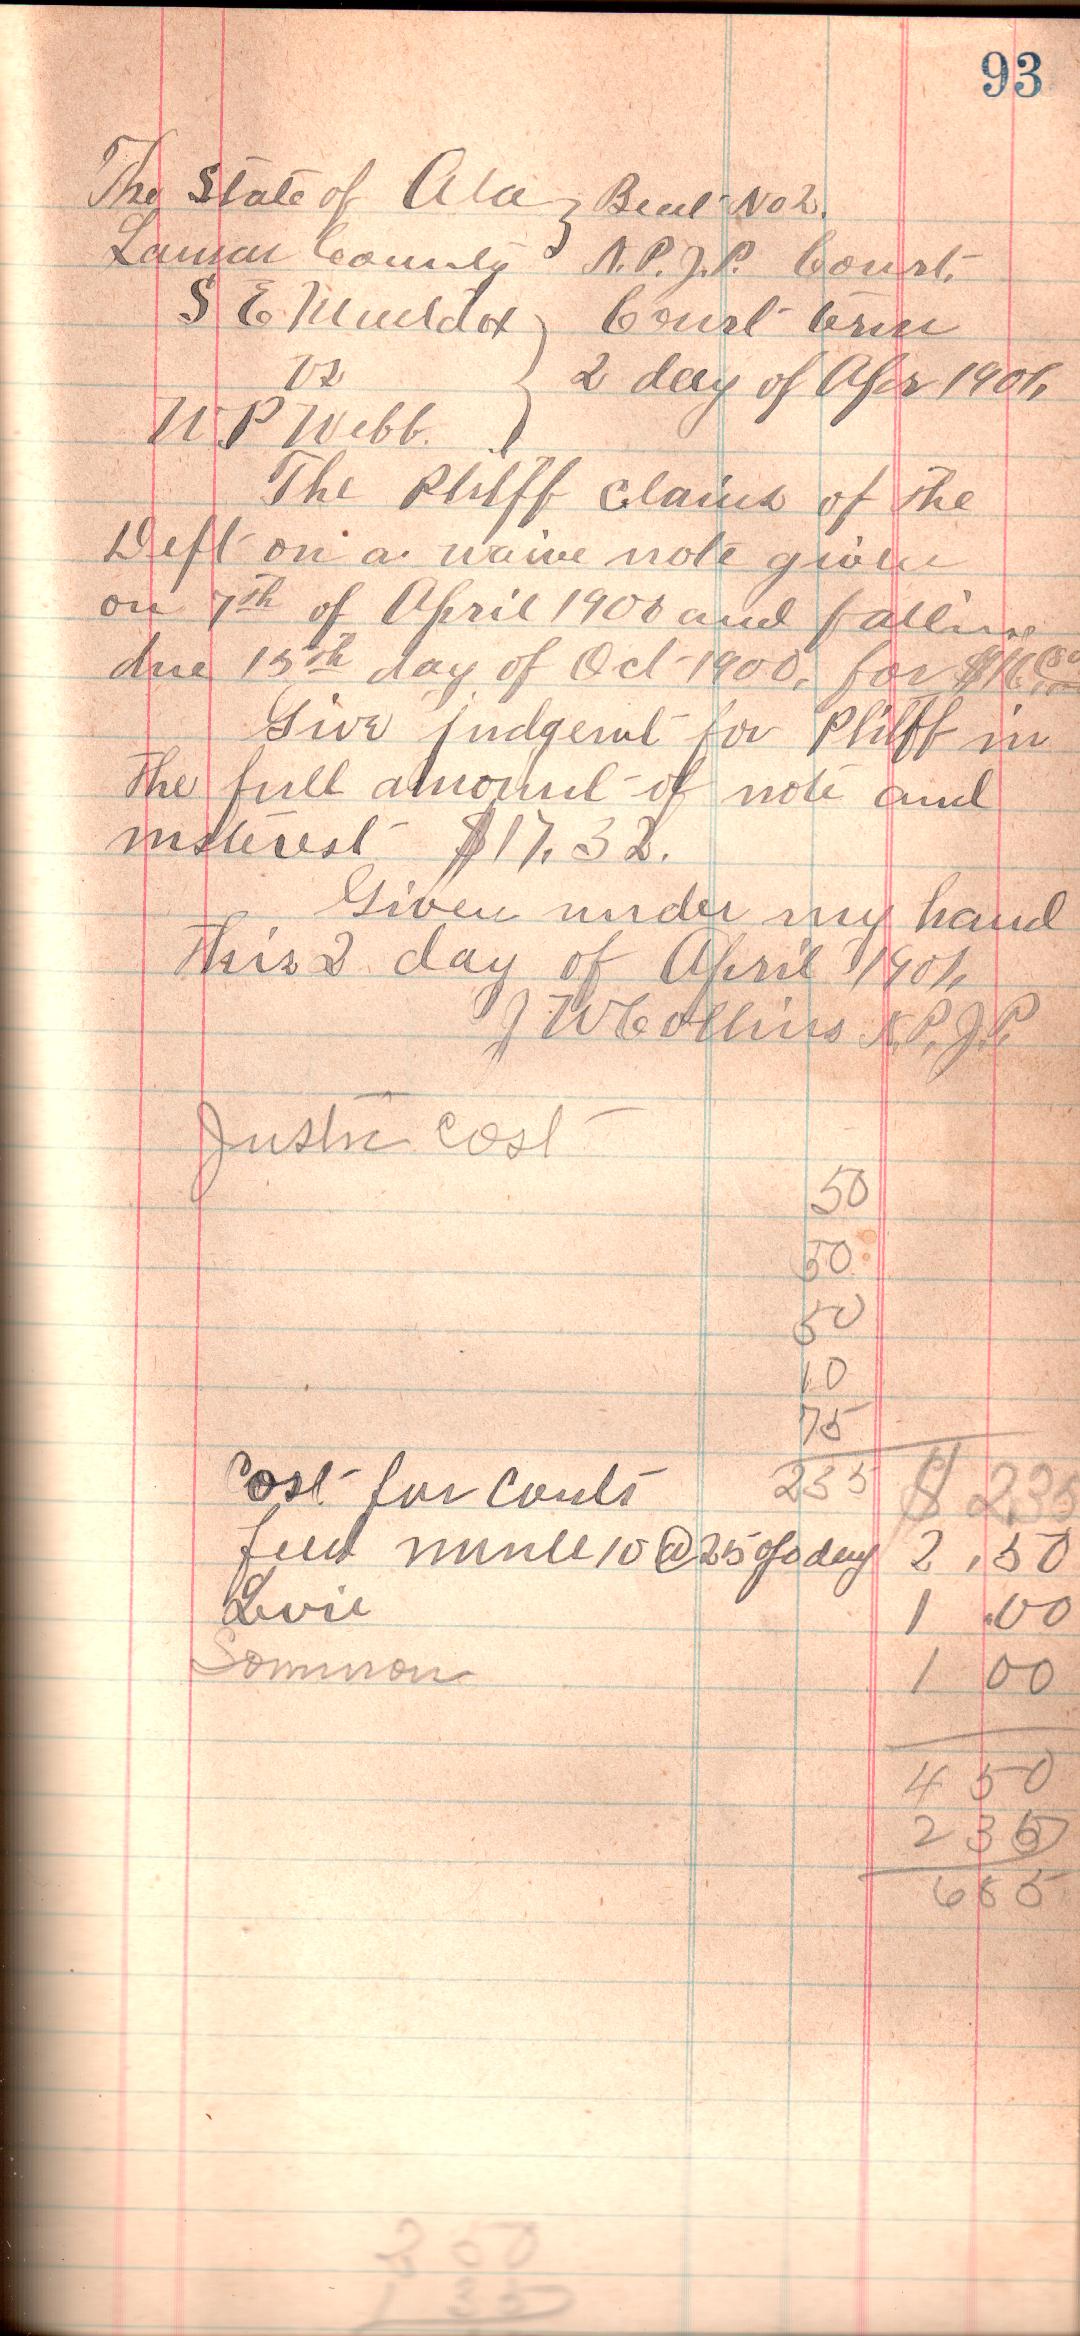 93
The State of Ala } Beat No 2.
Lamar County N.P.J.P. Court.
S E Maddox } Court term
vs } 2 day of Apr 1901,
W P Webb.
The Pltiff claims of the
Deft on a waive note given
on 7th of April 1900 and falling
due 15th day of Oct 1900, for $16
Give judgemt for Pltiff in
the full amount of note and
insterest $17.32.
Given under my hand
this 2 day of April 1901,
J W Collins N.P.J.P.
Justic Cost
50
50
50
10
75
Cost for Conts 235 $ 2.35
feed 10 @ 25 day 2.50
Levie 1.00
Sommon 1 00
4 50
2 35
6 85